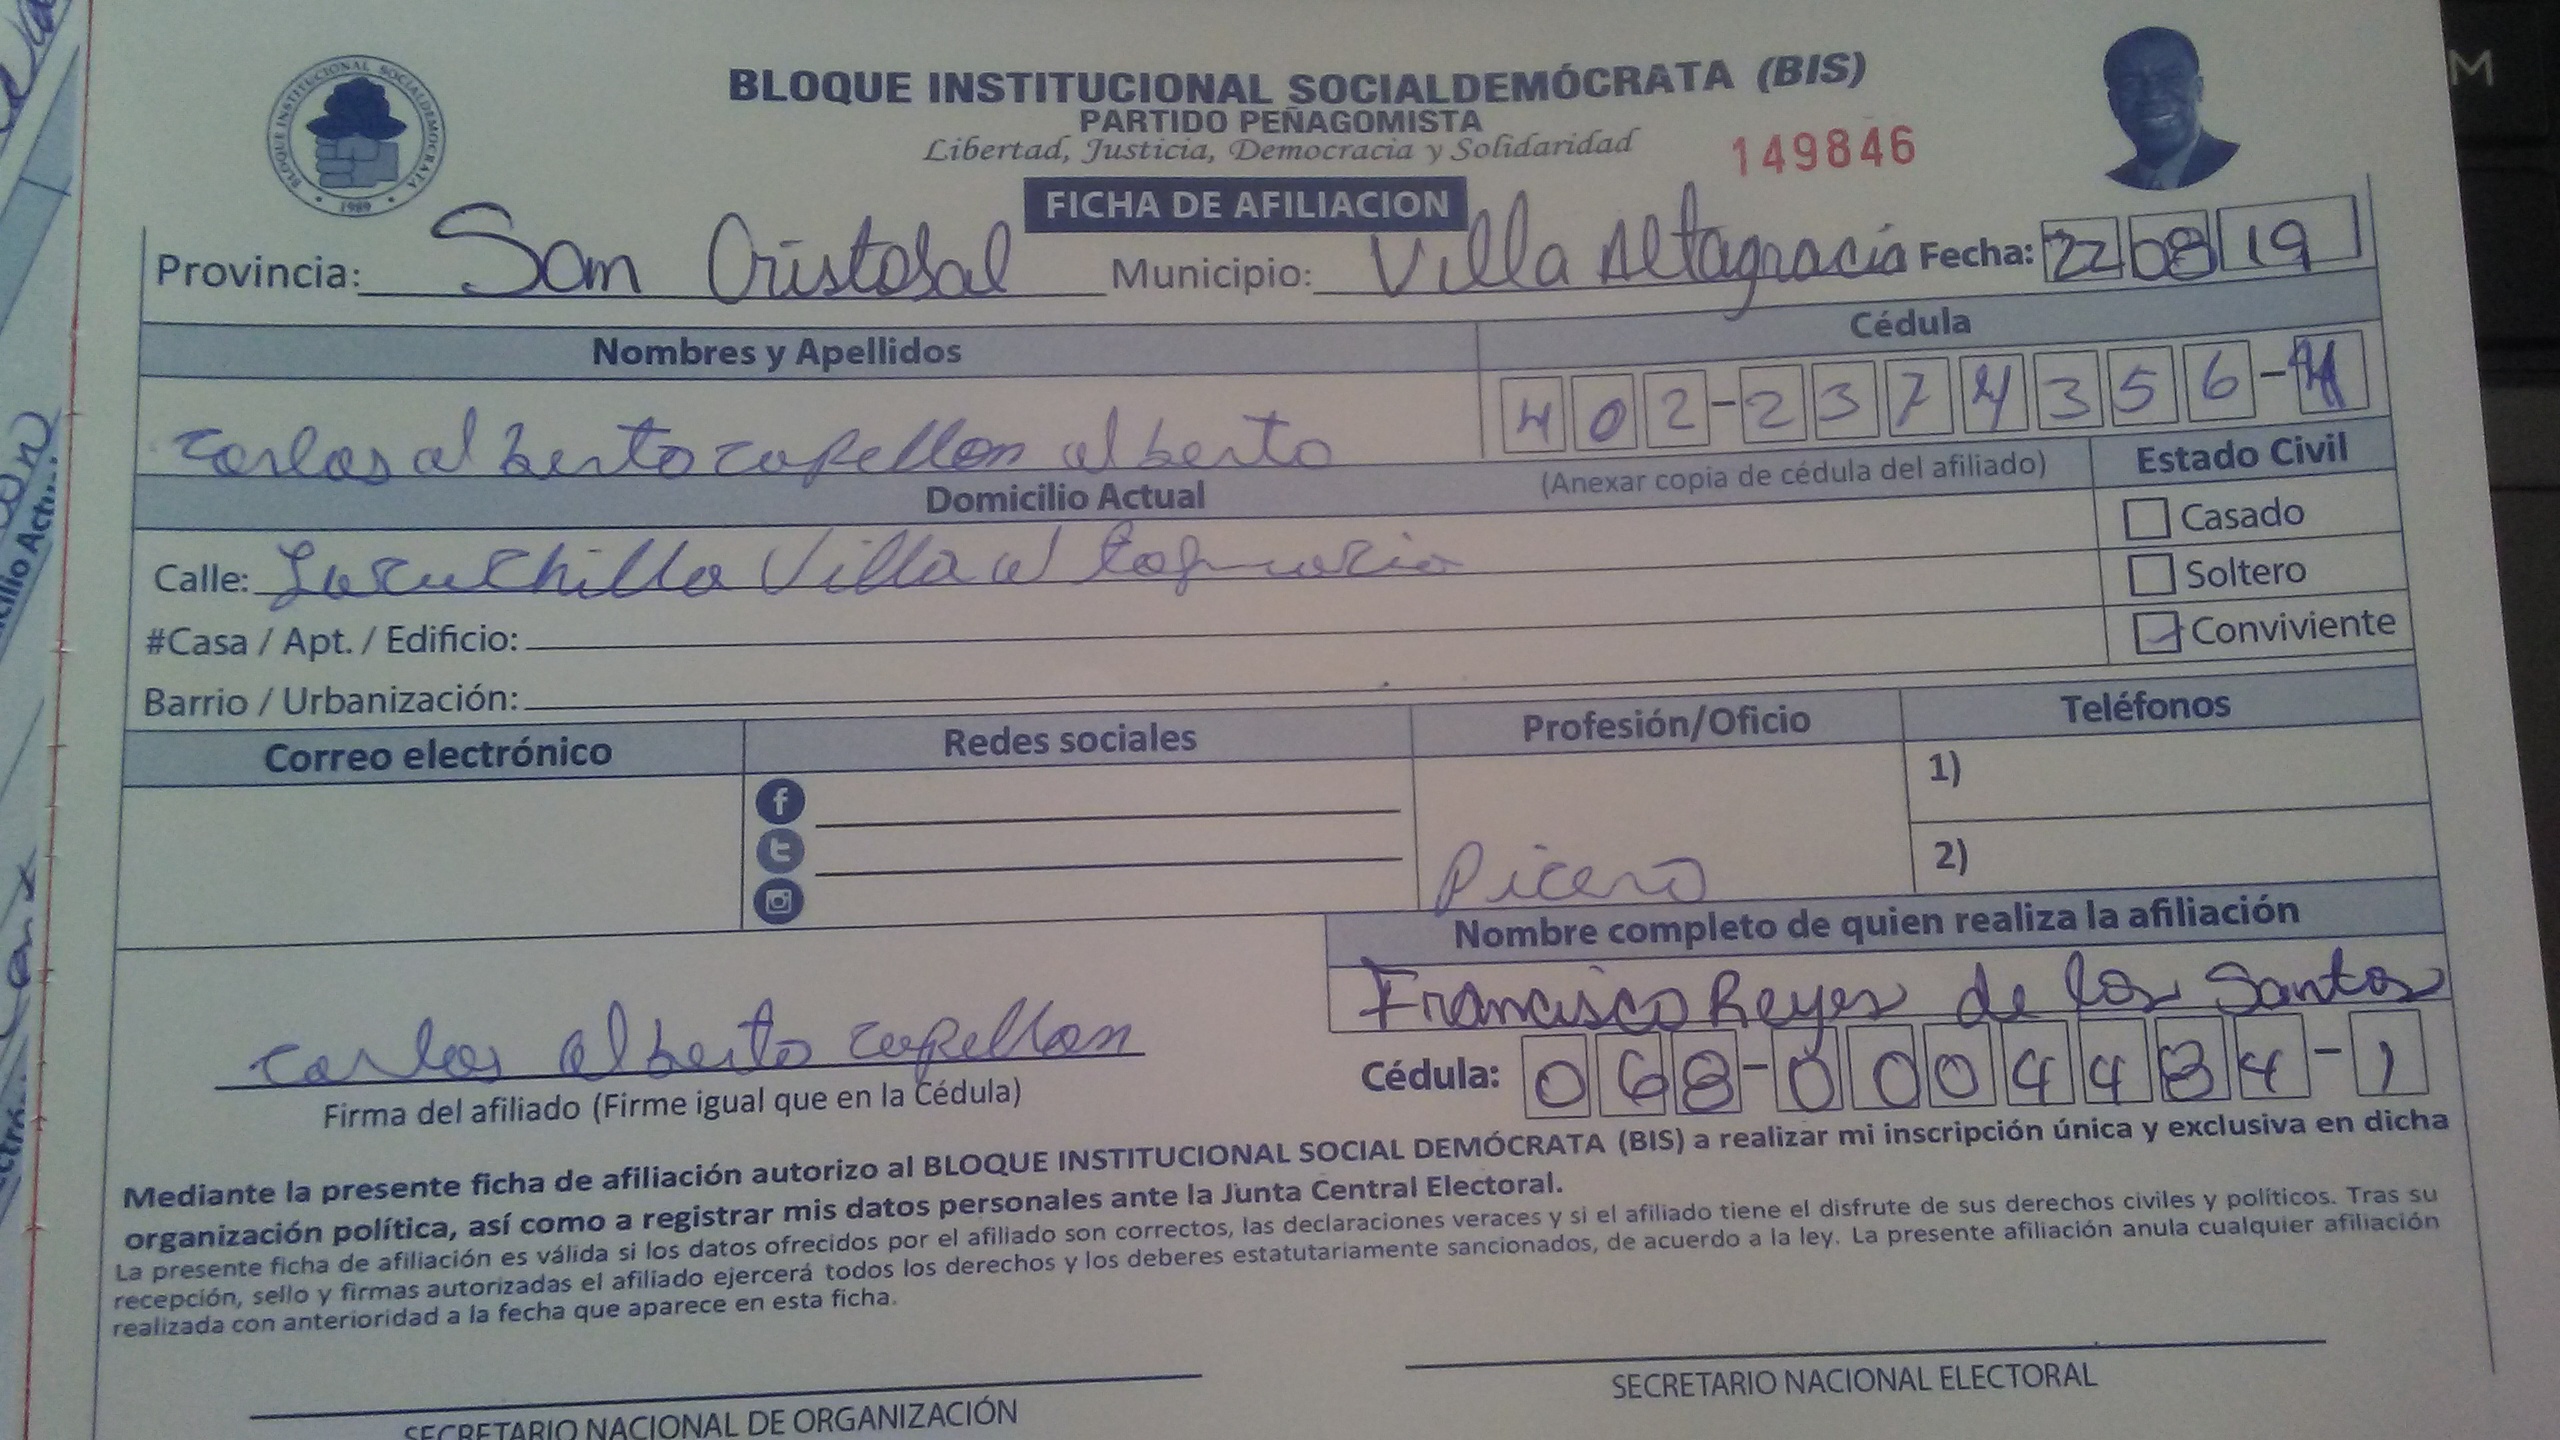 BLOQUE INSTITUCIONAL SOCIALDEMÓCRATA (BIS)
PARTIDO PEÑAGOMISTA
Libertad, Justicia, Democracia y Solidaridad
149846
BLOQUE INSTITUCIONAL SOCIALDEMOCRATA
1989
FICHA DE AFILIACION
Provincia: San Cristobal Municipio: Villa Altagracia Fecha: 22 08 19
Nombres y Apellidos Cédula
Carlos alberto capellan alberto 402-2374356-
(Anexar copia de cédula del afiliado)
Domicilio Actual Estado Civil
Casado
Calle: La cuchilla Villa altagracia
Soltero
#Casa / Apt. / Edificio:
Conviviente
Barrio / Urbanización:
Correo electrónico Redes sociales Profesión/Oficio Teléfonos
1)
2)
Picero
Nombre completo de quien realiza la afiliación
Francisco Reyes de los Santos
Carlos alberto capellan
Cédula: 068-0004484-1
Firma del afiliado (Firme igual que en la Cédula)
Mediante la presente ficha de afiliación autorizo al BLOQUE INSTITUCIONAL SOCIAL DEMÓCRATA (BIS) a realizar mi inscripción única y exclusiva en dicha
organización política, así como a registrar mis datos personales ante la Junta Central Electoral.
La presente ficha de afiliación es válida si los datos ofrecidos por el afiliado son correctos, las declaraciones veraces y si el afiliado tiene el disfrute de sus derechos civiles y políticos. Tras su
recepción, sello y firmas autorizadas el afiliado ejercerá todos los derechos y los deberes estatutariamente sancionados, de acuerdo a la ley. La presente afiliación anula cualquier afiliación
realizada con anterioridad a la fecha que aparece en esta ficha.
SECRETARIO NACIONAL DE ORGANIZACIÓN
SECRETARIO NACIONAL ELECTORAL